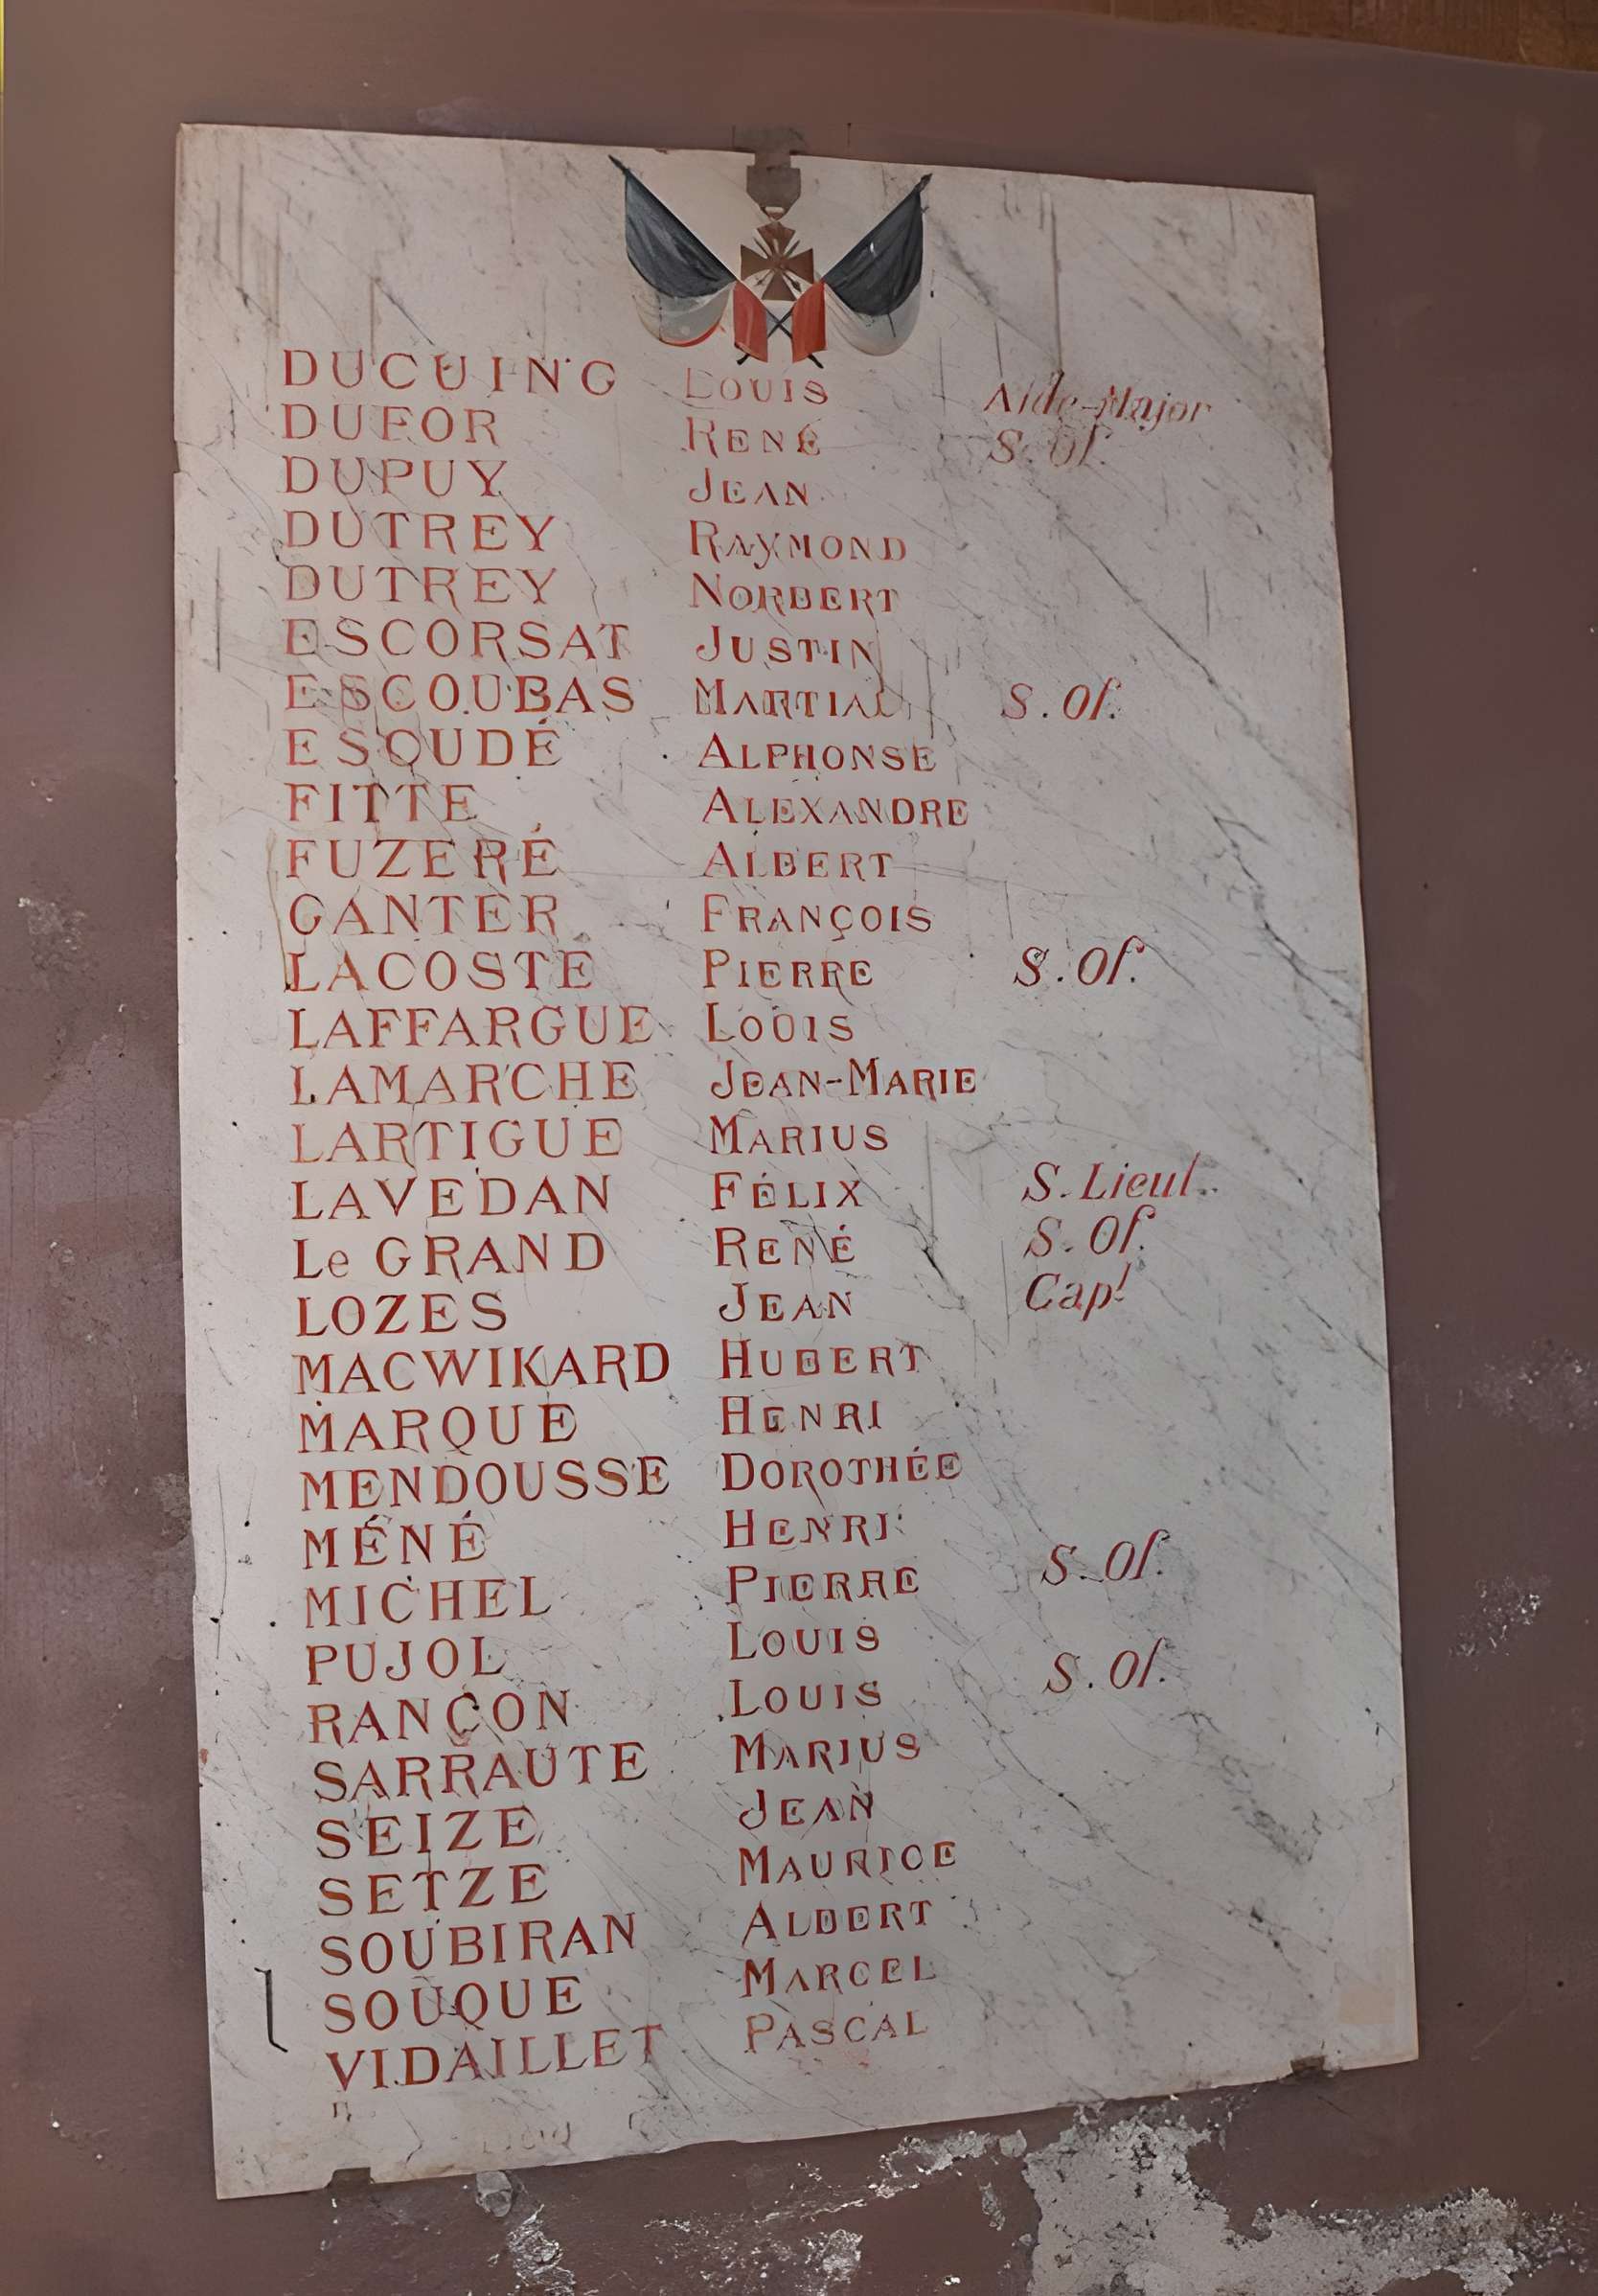 DUCUING LOUIS Aide-Major
DUFOR RENÉ S. Of.
DUPUY JEAN
DUTREY RAYMOND
DUTREY NORBERT
ESCORSAT JUSTIN
ESCOUBAS MARTIAL S. Of.
ESCUDÉ ALPHONSE
FITTE ALEXANDRE
FUZERÉ ALBERT
GANTER FRANÇOIS
LACOSTE PIERRE S. Of.
LAFFARGUE LOUIS
LAMARCHE JEAN-MARIE
LARTIGUE MARIUS
LAVEDAN FÉLIX S. Lieut.
Le GRAND RENÉ S. Of.
LOZES JEAN Capl
MACWIKARD HUBERT
MARQUE HENRI
MENDOUSSE DOROTHÉE
MÉNÉ HENRI
MICHEL PIERRE S. Of.
PUJOL LOUIS
RANÇON LOUIS S. Of.
SARRAUTE MARIUS
SEIZE JEAN
SETZE MAURICE
SOUBIRAN ALBERT
SOUQUE MARCEL
VIDAILLET PASCAL